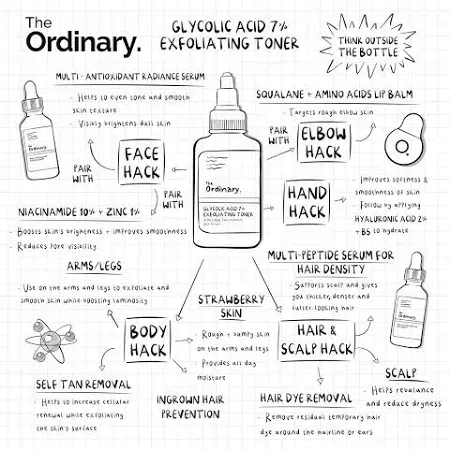 The
Ordinary.
GLYCOLIC ACID 7%
EXFOLIATING TONER
THINK OUTSIDE
THE BOTTLE
MULTI-ANTIOXIDANT RADIANCE SERUM
· Helps to even tone and smooth
skin texture
· Visibly brightens dull skin
The
Ordinary.
FACE
HACK
PAIR
WITH
PAIR
WITH
NIACINAMIDE 10% + ZINC 1%
· Boosts skin's brightness + improves smoothness
· Reduces pore visibility
The
Ordinary.
GLYCOLIC ACID 7%
EXFOLIATING TONER
SQUALANE + AMINO ACIDS LIP BALM
· Targets rough elbow skin
PAIR
WITH
ELBOW
HACK
HAND
HACK
· Improves softness &
smoothness of skin
· Follow by applying
HYALURONIC ACID 2%
+ B5 to hydrate
ARMS/LEGS
· Use on the arms and legs to exfoliate and
smooth skin while boosting luminosity
BODY
HACK
STRAWBERRY
SKIN
· Rough + bumpy skin
on the arms and legs
· Provides all day
moisture
SELF TAN REMOVAL
· Helps to increase cellular
renewal while exfoliating
the skin's surface
INGROWN HAIR
PREVENTION
MULTI-PEPTIDE SERUM FOR
HAIR DENSITY
· Supports scalp and gives
you thicker, denser and
fuller-looking hair
The
Ordinary.
HAIR &
SCALP HACK
HAIR DYE REMOVAL
· Remove residual temporary hair
dye around the hairline or ears
SCALP
· Helps rebalance
and reduce dryness